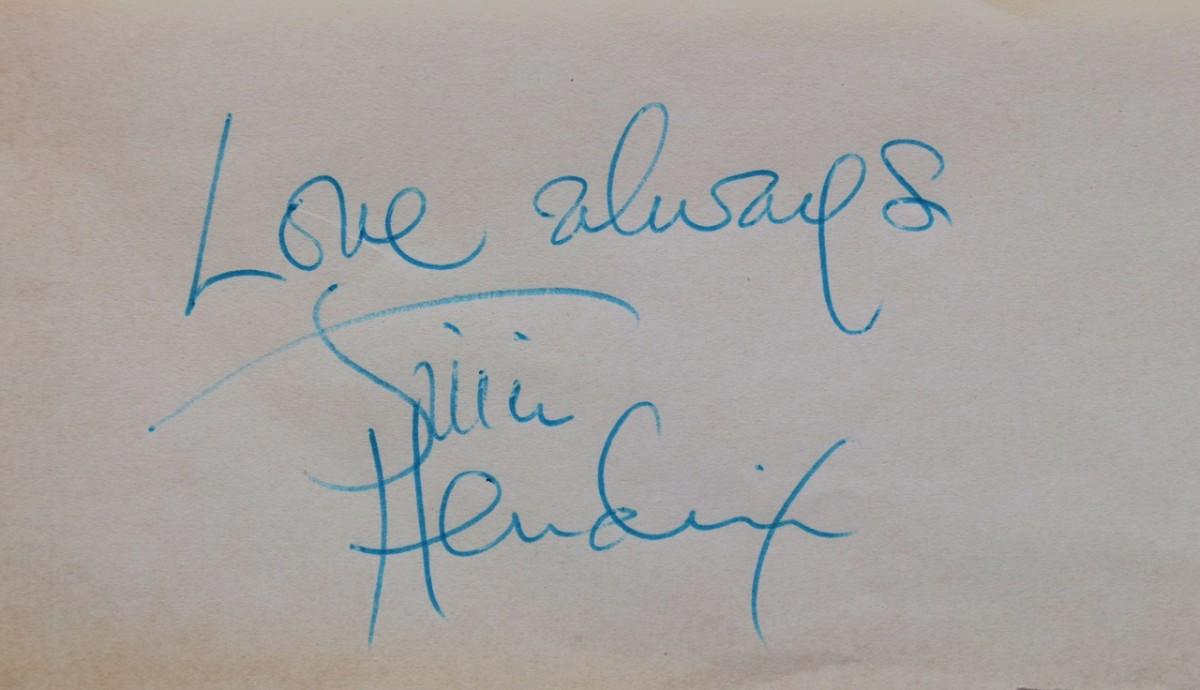 Love always
Jimi
Hendrix